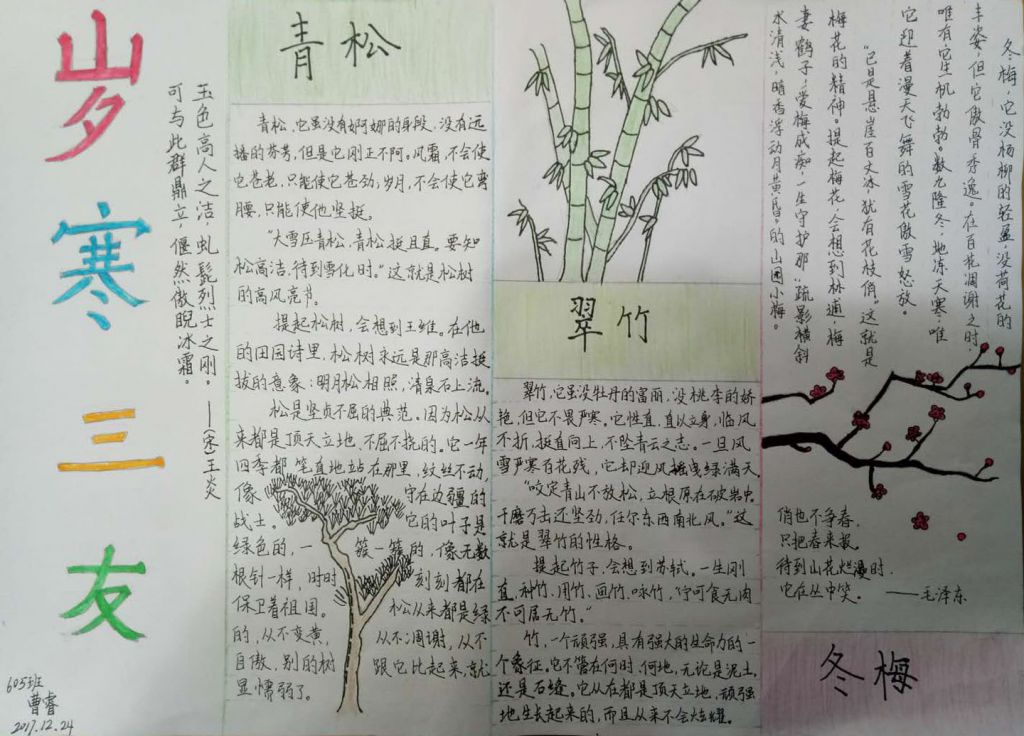 岁寒三友
玉色高人之洁，虬髯烈士之刚。
可与此群鼎立，偃然傲睨冰霜。
——(宋)王炎
605班
曹睿
2017.12.24
青松
青松，它虽没有婀娜的身段，没有远
播的芬芳，但是它刚正不阿。风霜，不会使
它苍老，只能使它苍劲；岁月，不会使它弯
腰，只能使他坚挺。
“大雪压青松，青松挺且直。要知
松高洁，待到雪化时。”这就是松树
的高风亮节。
提起松树，会想到王维。在他
的田园诗里，松树永远是那高洁挺
拔的意象：明月松相照，清泉石上流。
松是坚贞不屈的典范。因为松从
来都是顶天立地、不屈不挠的。它一年
四季都笔直地站在那里，纹丝不动，
像守在边疆的
战士。它的叶子是
绿色的，一簇一簇的，像无数
根针一样，时时刻刻都在
保卫着祖国。松从来都是绿
的，从不变黄，从不凋谢，从不
自傲，别的树跟它比起来，就
显懦弱了。
翠竹
翠竹，它虽没牡丹的富丽，没桃李的娇
艳，但它不畏严寒。它性直，直以立身，临风
不折，挺直向上，不坠青云之志。一旦风
雪严寒百花残，它却迎风摇曳绿满天
“咬定青山不放松，立根原在破岩中。
千磨万击还坚劲，任尔东西南北风。”这
就是翠竹的性格。
提起竹子，会想到苏轼。一生刚
直，种竹、用竹、画竹、咏竹，“宁可食无肉
不可居无竹。”
竹，一个顽强，具有强大的生命力的一
个象征。它不管在何时、何地，无论是泥土，
还是石缝。它从在都是顶天立地，顽强
地生长起来的，而且从来不会炫耀。
冬梅，它没杨柳的轻盈，没荷花的
丰姿，但它傲骨秀逸。在百花凋谢之时，
唯有它生机勃勃。数九隆冬，地冻天寒，唯
它迎着漫天飞舞的雪花傲雪怒放。
“已是悬崖百丈冰，犹有花枝俏。”这就是
梅花的精神。提起梅花，会想到林逋，梅
妻鹤子，爱梅成痴，一生守护那“疏影横斜
水清浅，暗香浮动月黄昏。”的山园小梅。
俏也不争春，
只把春来报。
待到山花烂漫时，
它在丛中笑。——毛泽东
冬梅